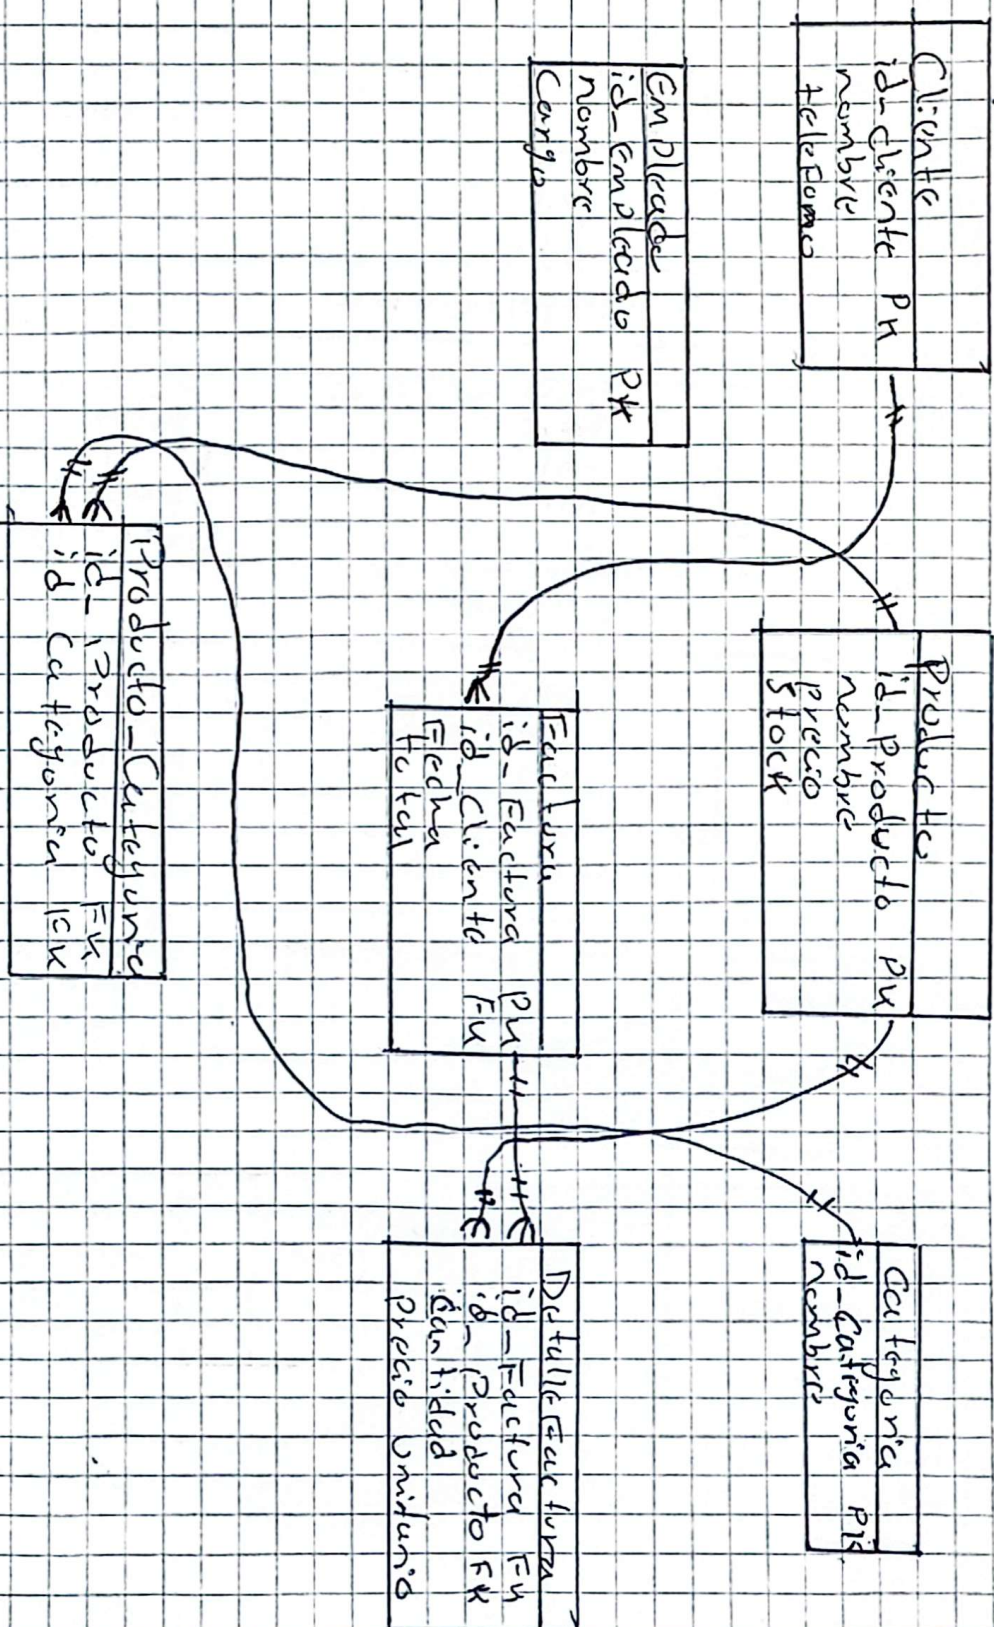 Cliente
id-cliente PK
nombre
telefono
Empleado
id-empleado PK
nombre
Cargo
Producto
id-Producto PK
nombre
Precio
Stock
Factura
id-Factura PK
id_Cliente FK
Fecha
total
Producto-Categoria
id-Producto FK
id Categoria FK
Categoria
id-Categoria PK
nombre
Detalle Factura
id-Factura FK
id-Producto FK
Cantidad
Precio Unitario